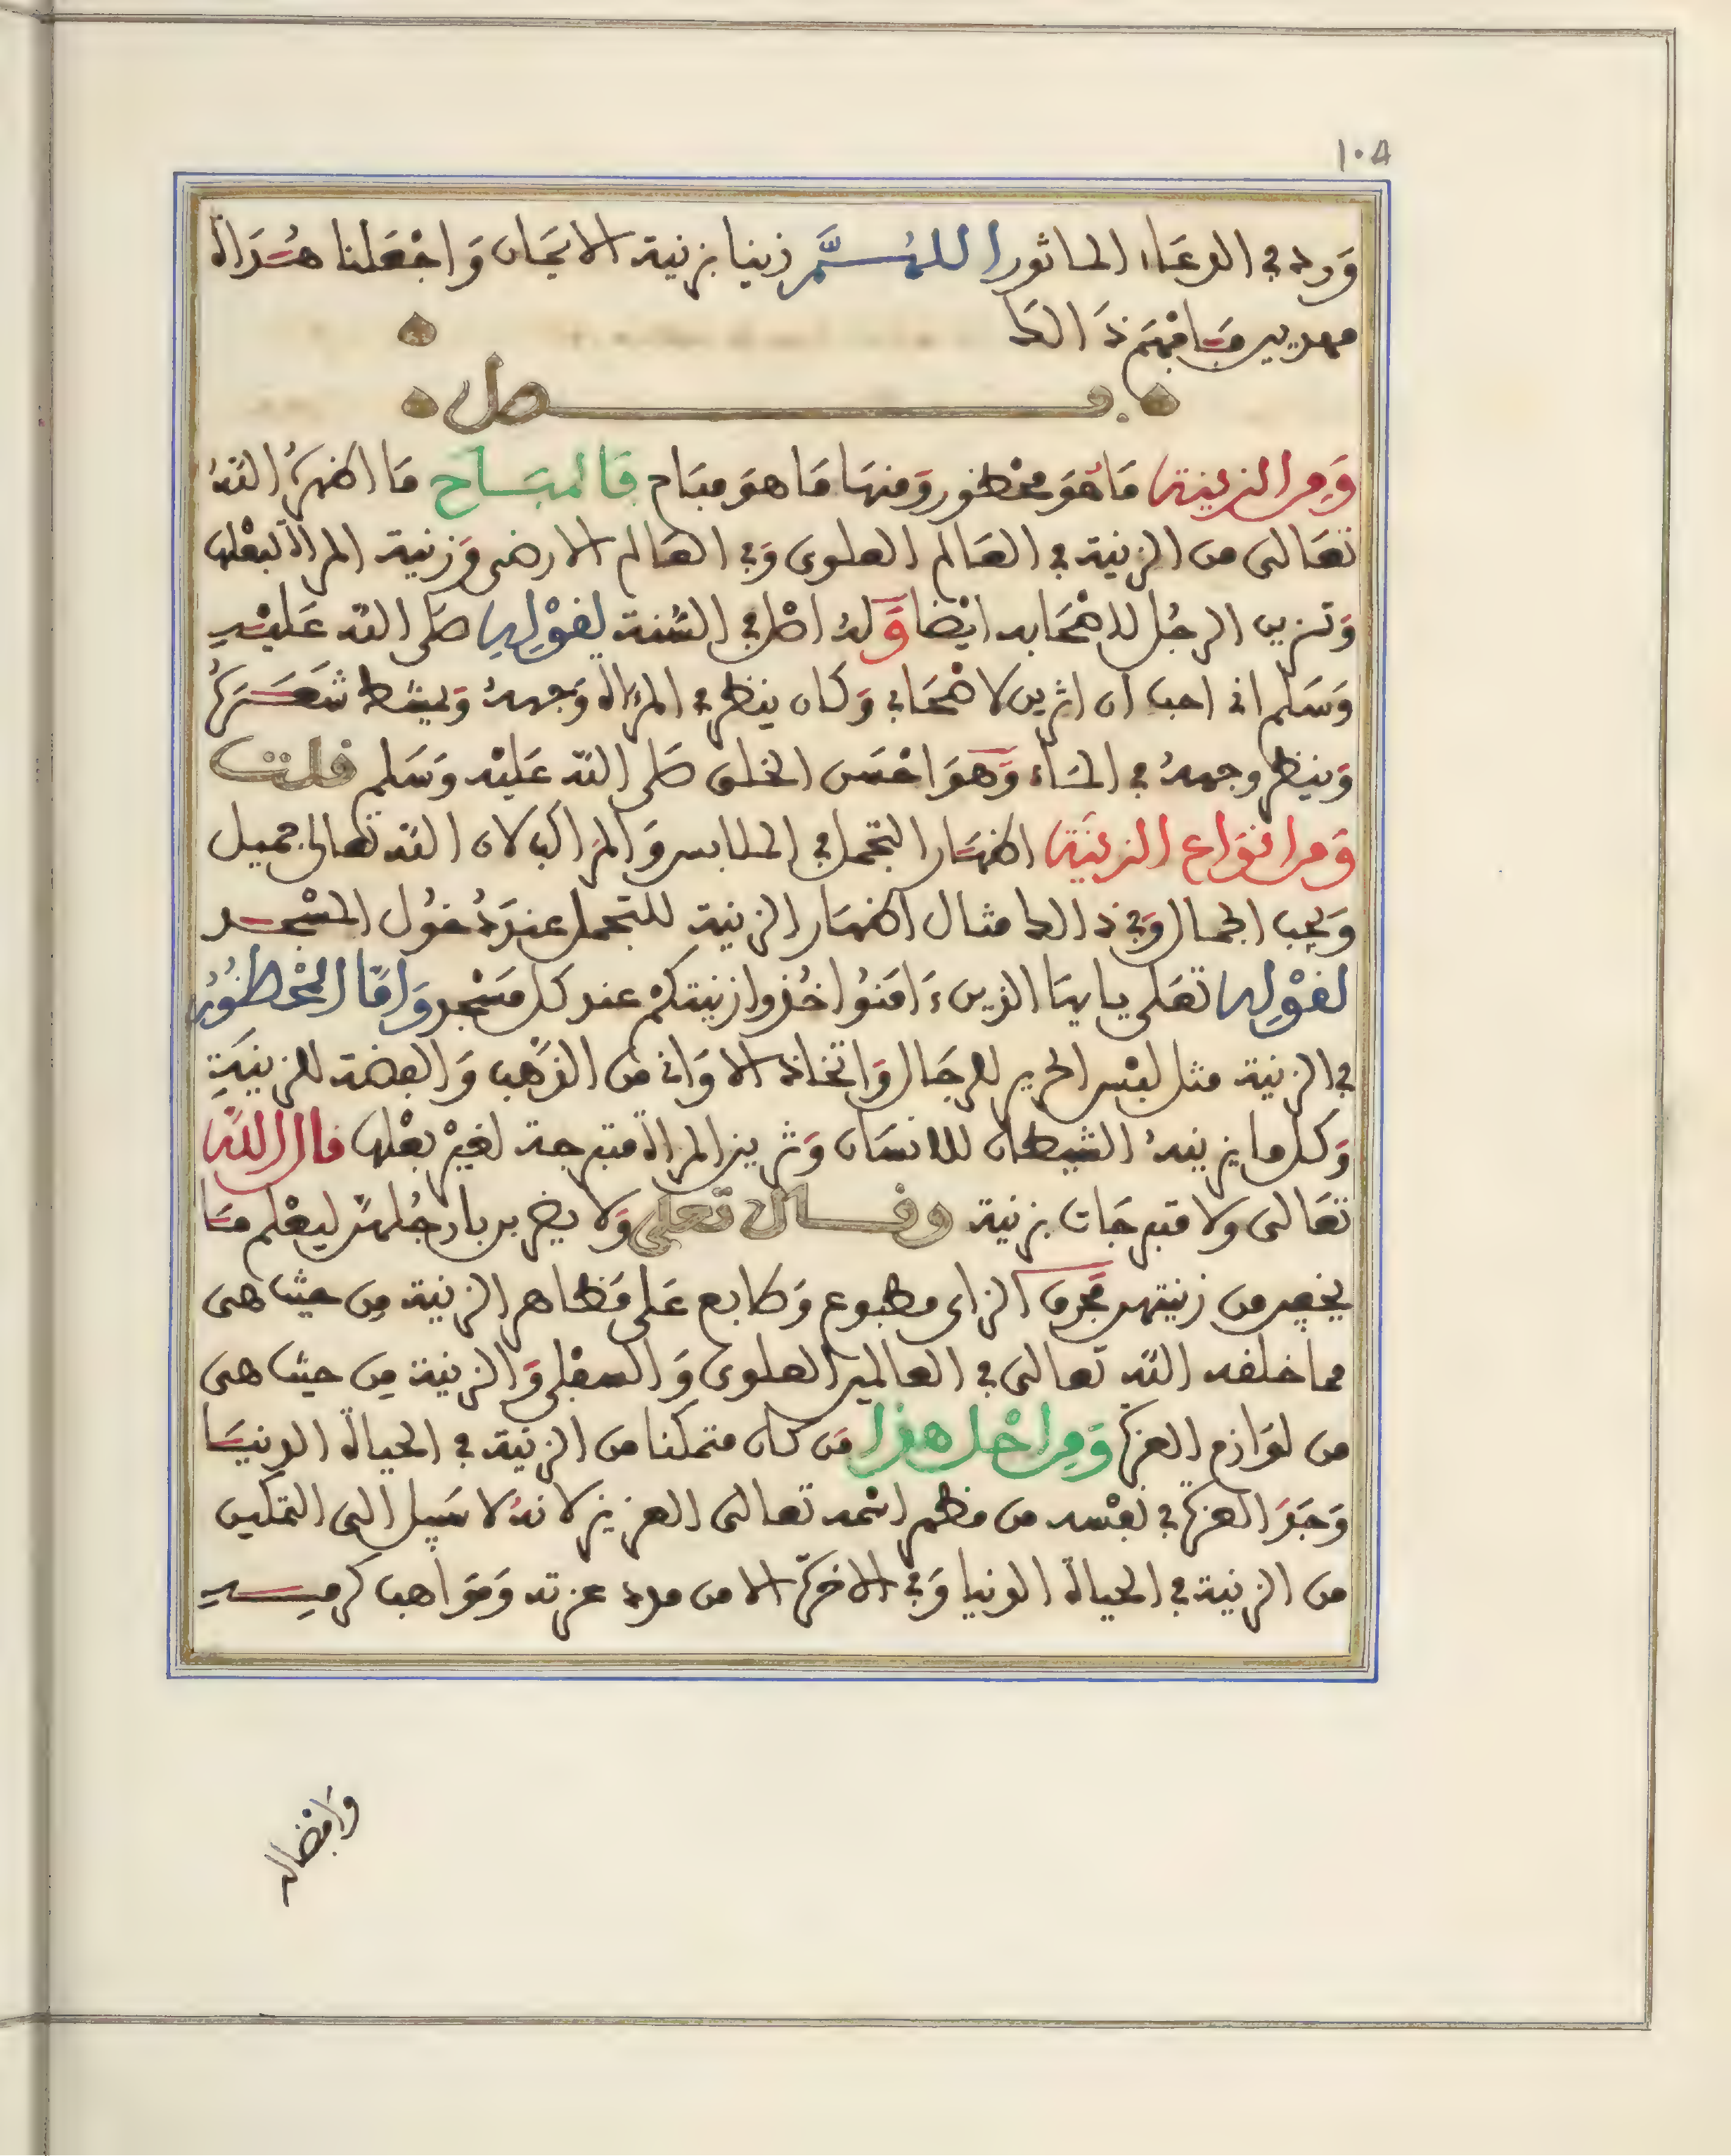 ١٠٨
وَرد في الدعَاء الماثور اللهُمَّ زينا بزينة الايمَان وَاجْعَلنا هُدَاة
مهديين فَافهَم ذَالك
فصل
وَمِن الزينة مَا هُوَ محْظور وَمنهَا مَا هوَ مبَاح فَالمبَاح مَا اظهرَهُ اللهُ
تعَالى من الزينة في العَالم العلوى وَفي العَالم الارضى وَزينة المراة لبعْلها
وَتزين الرجُل لاصْحَابه ايْضا وَلهُ اصْل في السُّنة لقوْلِهِ صَلى الله عَليْهِ
وَسَلم انى احب أن اتزين لاصْحَابى وَكان ينظر في المرءاة وَجههُ وَيمشط شَعَرَهُ
وَينظر وجههُ في المَاء وَهوَ احْسَن الخلق صَلى الله عَليْه وَسَلم قلت
وَمن انوَاع الزينَة اظهَار التجمل في الملابس وَالمرَاكب لان الله تعالى جميل
وَيحِب الجمال وَفي ذَالك مثال اظهَار الزينة للتجمل عندَ دُخوُل المسْجد
لقوْلِهِ تعَلى يايهَا الذين ءَامَنُوا خُذوا زينتكمْ عند كل مَسْجد وَامَّا المحْظُورُ
في الزينة مثل لبْس الحرير للرجَال وَاتخاذ الاوَانى منَ الذهَب وَالفضة للزينَةِ
وَكل ما يزينهُ الشيطان للانسَان وَتزين المراة متبرجة لغيْر بعْلها قال اللهُ
تعَالى ولا متبرجَات بزينة وقال تعلى وَلا يضربن بارجُلهنَّ ليعْلم مَا
يخفين من زينتهن فَحرف الزاى مطبوع وَطابع عَلى مَظاهر الزينة مِن حيث هى
مما خلقه الله تعالى في العالمين العلوى وَالسفلى وَالزينة مِن حيث هى
من لوَازم العزة وَمِن اجْل هذا مَن كان متمكنا من الزينة في الحياة الدنيَا
وَجَدَ العزة في نفْسه من مظهر اسْمه تعالى العزيز لانهُ لا سَبيل الى التمكين
من الزينة في الحياة الدنيا وَفي الاخرَة الا من مدد عزته وَموَاهب كرمِهِ
وَافضاله